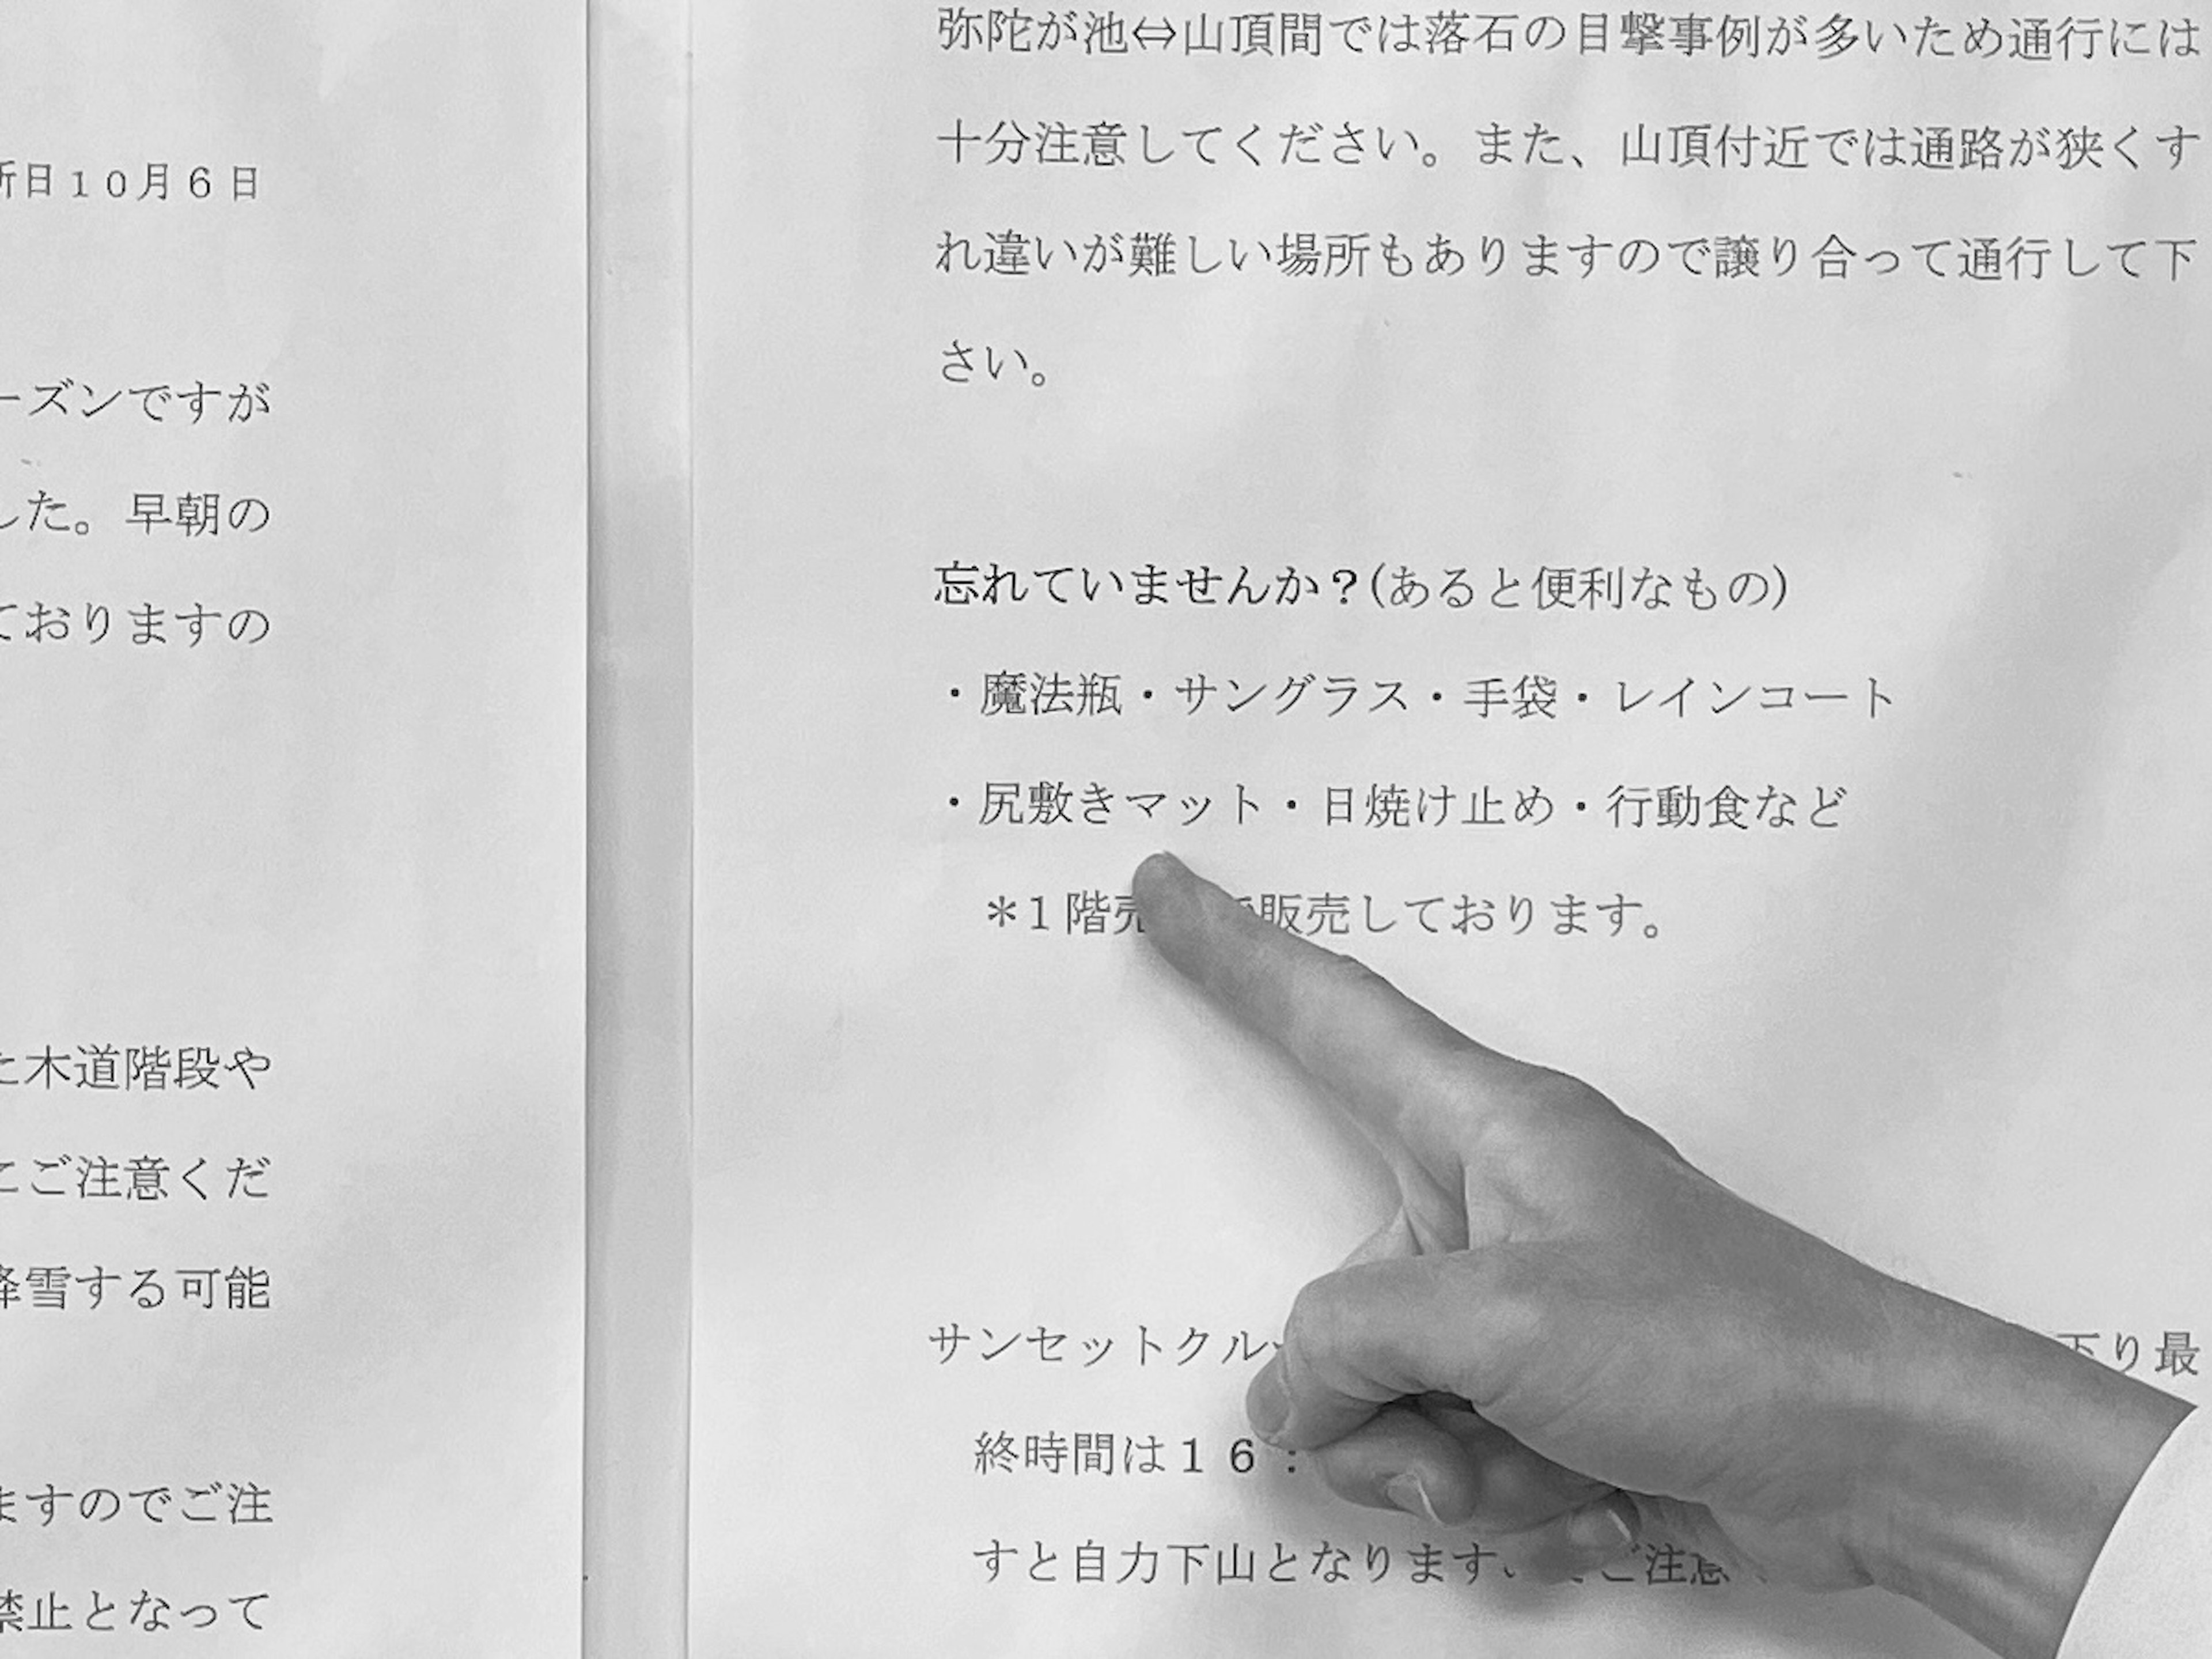 新日１０月６日
ーズンですが
した。早朝の
ておりますの
た木道階段や
にご注意くだ
降雪する可能
ますのでご注
禁止となって
弥陀が池⇔山頂間では落石の目撃事例が多いため通行には
十分注意してください。また、山頂付近では通路が狭くす
れ違いが難しい場所もありますので譲り合って通行して下
さい。
忘れていませんか？(あると便利なもの)
・魔法瓶・サングラス・手袋・レインコート
・尻敷きマット・日焼け止め・行動食など
＊1 階売 で販売しております。
サンセットクル 下り最
終時間は１６：
すと自力下山となります ご注意